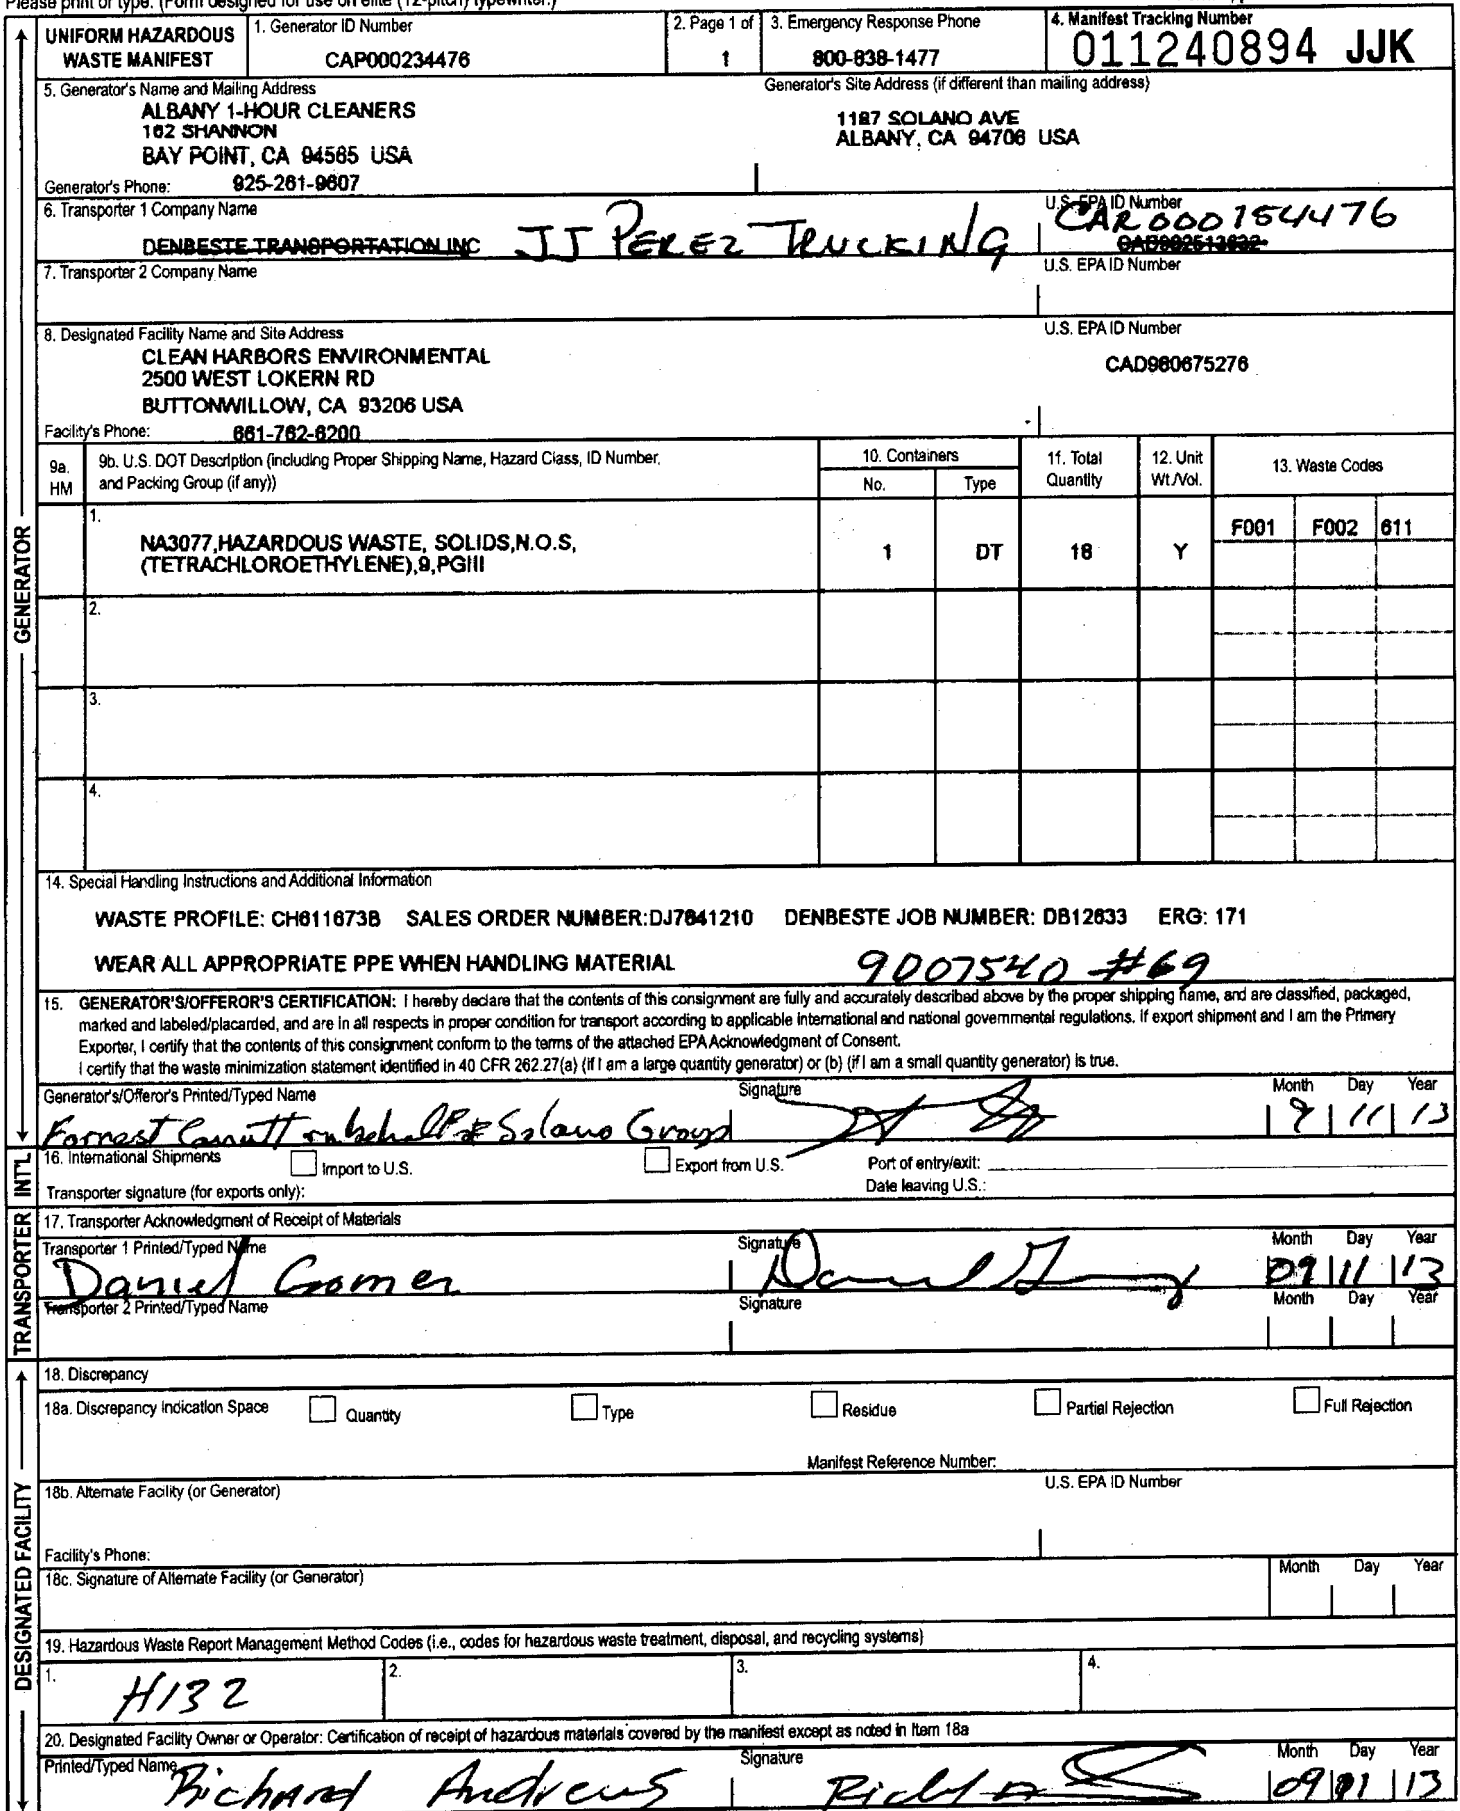 Please print or type. (Form designed for use on elite (12-pitch) typewriter.)
UNIFORM HAZARDOUS WASTE MANIFEST
1. Generator ID Number
CAP000234476
2. Page 1 of
1
3. Emergency Response Phone
800-838-1477
4. Manifest Tracking Number
011240894 JJK
5. Generator's Name and Mailing Address
ALBANY 1-HOUR CLEANERS
162 SHANNON
BAY POINT, CA 94565 USA
Generator's Phone: 925-261-9607
Generator's Site Address (if different than mailing address)
1187 SOLANO AVE
ALBANY, CA 94706 USA
6. Transporter 1 Company Name
DENBESTE TRANSPORTATION INC JJ PEREZ TRUCKING
U.S. EPA ID Number
CAR000154476
7. Transporter 2 Company Name
U.S. EPA ID Number
8. Designated Facility Name and Site Address
CLEAN HARBORS ENVIRONMENTAL
2500 WEST LOKERN RD
BUTTONWILLOW, CA 93206 USA
Facility's Phone: 661-762-6200
U.S. EPA ID Number
CAD980675276
9a. HM
9b. U.S. DOT Description (including Proper Shipping Name, Hazard Class, ID Number, and Packing Group (if any))
10. Containers
No.
Type
11. Total Quantity
12. Unit Wt./Vol.
13. Waste Codes
1.
NA3077,HAZARDOUS WASTE, SOLIDS,N.O.S,
(TETRACHLOROETHYLENE),9,PGIII
1 DT 18 Y F001 F002 611
2.
3.
4.
14. Special Handling Instructions and Additional Information
WASTE PROFILE: CH611673B SALES ORDER NUMBER:DJ7641210 DENBESTE JOB NUMBER: DB12633 ERG: 171
WEAR ALL APPROPRIATE PPE WHEN HANDLING MATERIAL 9D07540 #69
15. GENERATOR'S/OFFEROR'S CERTIFICATION: I hereby declare that the contents of this consignment are fully and accurately described above by the proper shipping name, and are classified, packaged,
marked and labeled/placarded, and are in all respects in proper condition for transport according to applicable international and national governmental regulations. If export shipment and I am the Primary
Exporter, I certify that the contents of this consignment conform to the terms of the attached EPA Acknowledgment of Consent.
I certify that the waste minimization statement identified in 40 CFR 262.27(a) (if I am a large quantity generator) or (b) (if I am a small quantity generator) is true.
Generator's/Offeror's Printed/Typed Name
Signature
Month Day Year
Forrest on behalf of Solano Group
9 11 13
16. International Shipments
Import to U.S.
Export from U.S.
Port of entry/exit:
Transporter signature (for exports only):
Date leaving U.S.:
17. Transporter Acknowledgment of Receipt of Materials
Transporter 1 Printed/Typed Name
Signature
Month Day Year
Daniel Gomer
09 11 13
Transporter 2 Printed/Typed Name
Signature
Month Day Year
18. Discrepancy
18a. Discrepancy Indication Space
Quantity
Type
Residue
Partial Rejection
Full Rejection
Manifest Reference Number:
18b. Alternate Facility (or Generator)
U.S. EPA ID Number
Facility's Phone:
18c. Signature of Alternate Facility (or Generator)
Month Day Year
19. Hazardous Waste Report Management Method Codes (i.e., codes for hazardous waste treatment, disposal, and recycling systems)
1.
H132
2.
3.
4.
20. Designated Facility Owner or Operator: Certification of receipt of hazardous materials covered by the manifest except as noted in Item 18a
Printed/Typed Name
Signature
Month Day Year
Richard Andrews
09 11 13
GENERATOR
INT'L
TRANSPORTER
DESIGNATED FACILITY